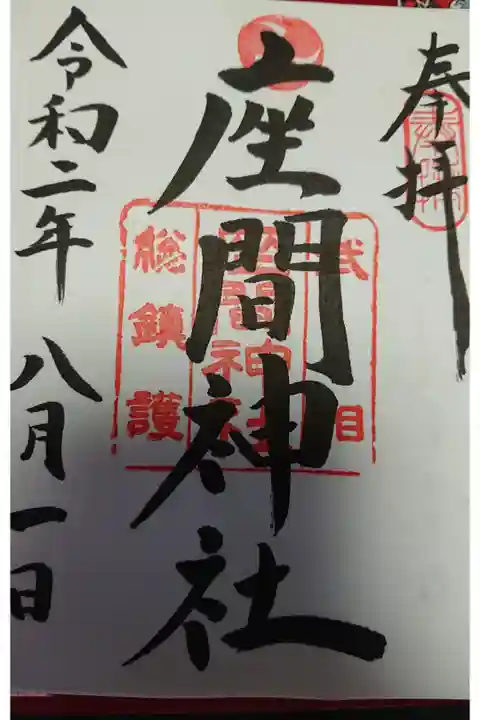 奉拝
座間神社
相武
座間神社
総鎮護
令和二年 八月一日